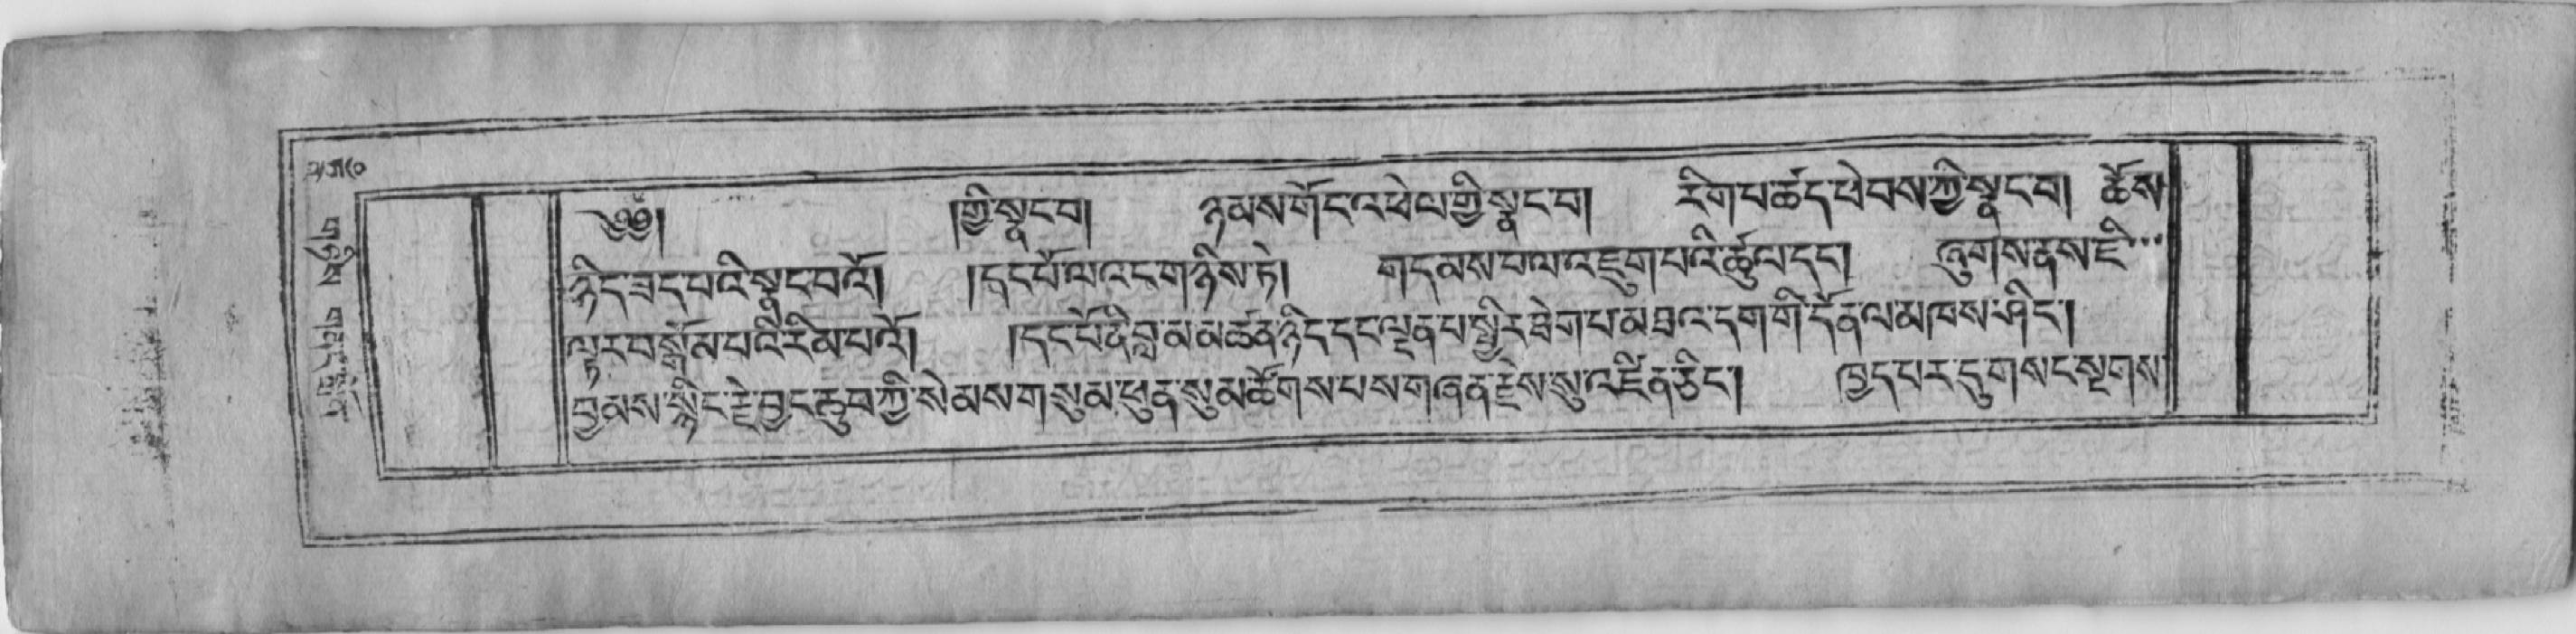 ༄༅། །ཀྱི་སྣང་བ། ཉམས་གོང་འཕེལ་གྱི་སྣང་བ། རིག་པ་ཚད་ཕེབས་ཀྱི་སྣང་བ། ཆོས་
ཉིད་ཟད་པའི་སྣང་བའོ། །དང་པོ་ལ་འང་གཉིས་ཏེ། གདམས་པ་ལ་འཇུག་པའི་ཚུལ་དང་། ཞུགས་ནས་ཇི་
ལྟར་བསྒོམ་པའི་རིམ་པའོ། །དང་པོ་ནི་བླ་མ་མཚན་ཉིད་དང་ལྡན་པ་སྤྱིར་ཐེག་པ་མཐའ་དག་གི་དོན་ལ་མཁས་ཤིང་།
བྱམས་སྙིང་རྗེ་བྱང་ཆུབ་ཀྱི་སེམས་གསུམ་ཕུན་སུམ་ཚོགས་པས་གཞན་རྗེས་སུ་འཛིན་ཅིང་། ཁྱད་པར་དུ་གསང་སྔགས་